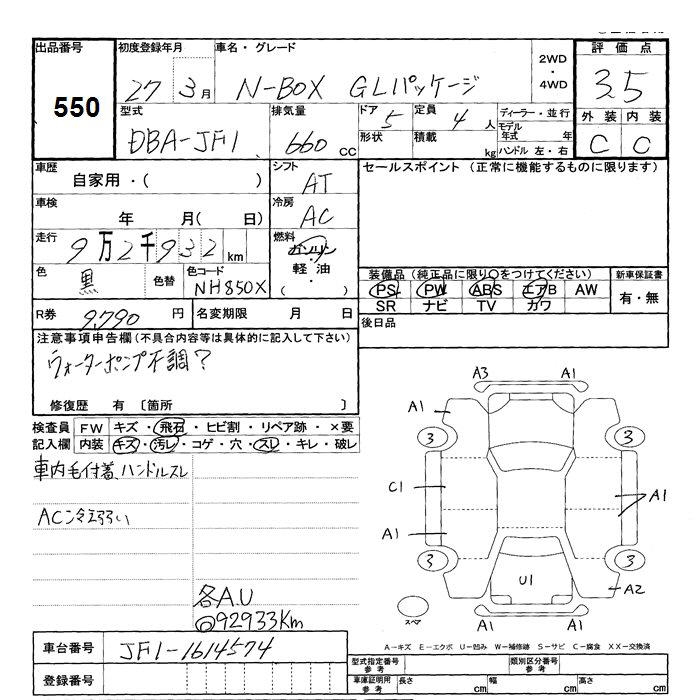 出品番号
550
初度登録年月
27 3月
車名・グレード
N-BOX GLパッケージ
2WD
・
4WD
評価点
3.5
型式
DBA-JF1
排気量
660 cc
ドア 5
定員 4 人
形状
積載 kg
ディーラー・並行
モデル年式 年
ハンドル 左・右
外装 内装
C C
車歴
自家用・( )
シフト
AT
セールスポイント (正常に機能するものに限ります)
車検
年 月( 日)
冷房
AC
走行
9万2千932 km
燃料
ガソリン
・
軽油
( )
色
黒
色替
色コード
NH850X
装備品 (純正品に限り○をつけてください)
PS PW ABS エアB AW
SR ナビ TV カワ
新車保証書
有・無
R券 9,790 円
名変期限 月 日
後日品
注意事項申告欄 (不具合内容等は具体的に記入して下さい)
ウォーターポンプ不調?
修復歴 有 〔箇所 〕
検査員記入欄
FW キズ・飛石・ヒビ割・リペア跡・×要
内装 キズ・汚レ・コゲ・穴・スレ・キレ・破レ
車内毛付着、ハンドルスレ
AC冷え弱い
各A.U
◎92933Km
A3 A1
A1
3 3
C1
A1
A1
3 3
U1
A2
スペア
A1 A1
A-キズ E-エクボ U-凹み W-補修跡 S-サビ C-腐食 XX-交換済
車台番号
JF1-1614574
登録番号
型式指定番号
参考
類別区分番号
参考
車庫証明用
参考
長さ cm
幅 cm
高さ cm